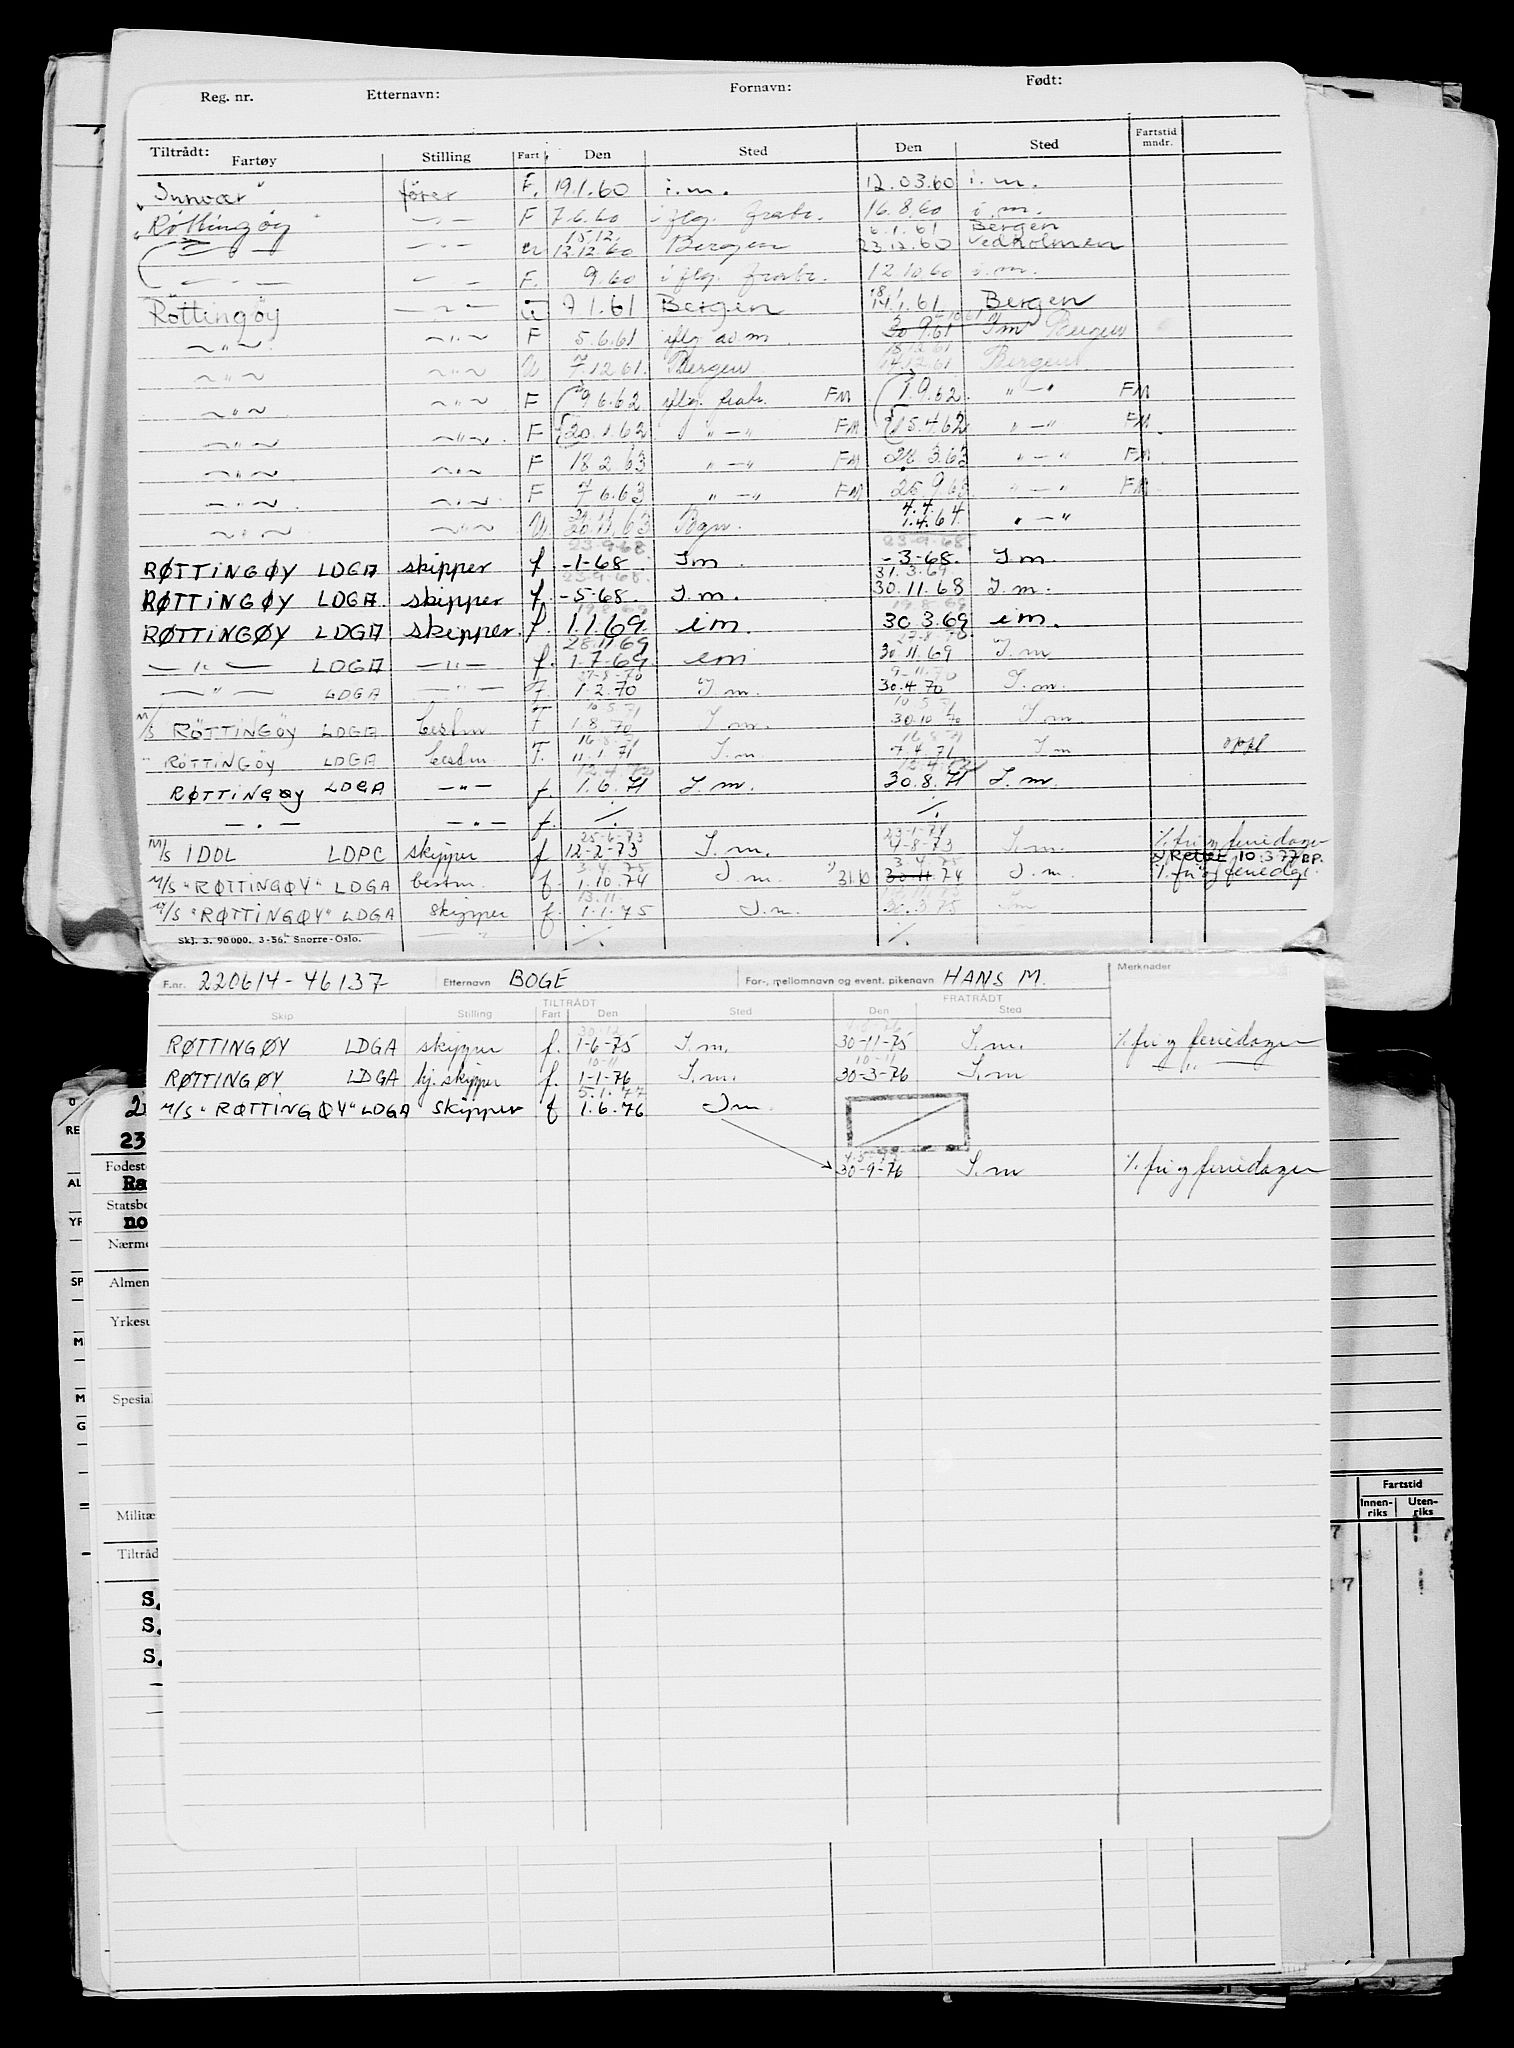 Reg. nr. Etternavn: Fornavn: Født:
Tiltrådt:
Fartøy Stilling Fart Den Sted Den Sted Fartstid mndr.
"Innvær" fører F. 19.1.60 i.m. 12.03.60 i.m.
"Røttingøy" —"— F 7.6.60 iflg. fratr. 16.8.60 i.m.
15.12. 6.1.61 Bergen
—"— —"— U 12.12.60 Bergen 23.12.60 Vedholmen
—"— —"— F. 9.60 iflg. fratr. 12.10.60 i.m.
18.1
Röttingöy —"— U 7.1.61 Bergen 14.1.61 Bergen
—"— —"— F 5.6.61 iflg av.m. 30.9.61 Im Bergen
18.12.61
—"— —"— U 7.12.61 Bergen 14.12.61 Bergen
—"— —"— F 9.6.62 iflg. fratr. FM 1.9.62 "—" FM
—"— —"— F 20.1.62 "—" FM 15.4.62 "—" FM
—"— —"— F 18.2.63 "—" FM 28.3.63 "—" FM
—"— —"— F 7.6.63 "—" FM 25.9.63 "—" FM
4.4.
—"— —"— U 20.11.63 Bgn. 1.4.64 "—"
23-9-68 23-9-68
RØTTINGØY LDGA skipper f. -1-68 I m. -3-68. I m.
23-9-68. 31.3.69
RØTTINGØY LDGA. skipper f. -5-68. I.m. 30.11.68 I.m.
19.8.69 19.8.69
RØTTINGØY LDGA skipper. f. 1.1.69. im. 30.3.69 im.
28.11.69 27.8.70
—"— LDGA —"— f. 1-7-69 im 30.11.69 I.m
27-8-70 9-11-70
—"— LDGA —"— F. 1.2.70 I.m. 30.4.70 I.m.
10.5.71 10.5.71
M/S RÖTTINGÖY LDGA bestm. F 1.8.70 I.m. 30.10.70 I.m.
16.8.71 16.8.71
" RÖTTINGÖY LDGA bestm F. 11.1.71 I.m 7.4.71 I.m oppl
12.4.72 12.4.72
RØTTINGØY LDGA —"— f. 1.6.71 I.m. 30.8.71 I.m.
—"— —"— f. ./. ./.
25-6-73 23-1-74
M/S IDOL LDPC skipper f 12-2-73 I.m. 4-8-73 I.m. ./. fri og feriedager
3.4.75 3.4.75 x) Rettet 10.3.77 BP.
M/S "RØTTINGØY" LDGA bestm. f. 1.10.74 I.m. x) 31.10 30.11.74 I.m. ./. fri og feriedgr.
13.11.
M/S "RØTTINGØY" LDGA skipper f. 1.1.75 I.m. 30.3.75 Im
./. ./.
Skj. 3. 90000. 3-56. Snorre-Oslo.
F.nr. 220614-46137 Etternavn BOGE For-, mellomnavn og event. pikenavn HANS M. Merknader
TILTRÅDT FRATRÅDT
Skip Stilling Fart Den Sted Den Sted
30-12
RØTTINGØY LDGA skipper f. 1-6-75 I.m. 30-11-75 I.m. ./. fri og feriedager
10-11 10-11
RØTTINGØY LDGA hj. skipper f. 1-1-76 I.m. 30-3-76 I.m —"—
5.1.77
M/S "RØTTINGØY" LDGA skipper f 1.6.76 Im.
4.5.77
30-9-76 I.m ./. fri og feriedager
O
RE
23
Fødeste
AL Ra
Statsbo
YR no
Nærme
SP Almen
Yrkesu
M
M Spesial
G
Fartstid
Innen-riks Uten-riks
Militæ
Tiltråd
7
S.
S.
S.